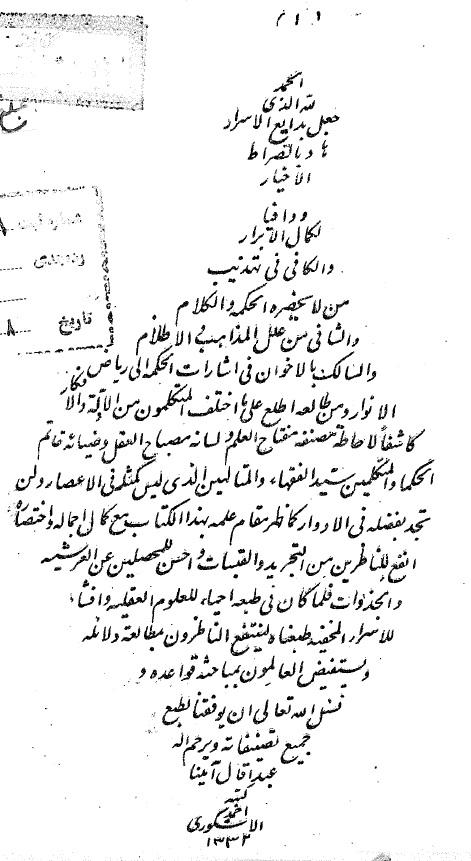 (١)
الحمد
لله الذی
جعل بدایع الاسرار
هادیا لصراط
الاخیار
و وافیا
لکمال الابرار
والکافی فی تهذیب
من لا یحضره الحکمه و الکلام
والشافی من علل المذاهب فی الاظلام
والسالک بالاخوان فی اشارات الحکمة الی ریاض
الانوار و من طالعه اطلع علی ما اختلف المتکلمون من الآلهة والافکار
کاشفاً لاحاطة مصنفه مفتاح العلم و لسانه مصباح العقل و ضیائه خاتم
الحکما والمتکلمین سید الفقهاء والمتالهین الذی لیس کمثله فی الاعصار و لن
تجد بفضله فی الادوار کما ظهر مقام علمه بهذا الکتاب مع کمال اجماله و اختصاره
انفع للناظرین من التجرید والقبسات و احسن للمحصلین عن العرشیه
والجذوات فلما کان فی طبعه احیاء للعلوم العقلیه و افشاء
للاسرار المخفیه طبعناه لینتفع الناظرون بمطالعة دلائله
و یستفیض العالمون بمباحثه قواعده و
نسئل الله تعالی ان یوفقنا لطبع
جمیع تصنیفاته و یرحم الله
عبدا قال آمینا
کتبه
احمد
الاشکوری
۱۳۳۲
شماره ثبت
رده‌بندی
تاریخ